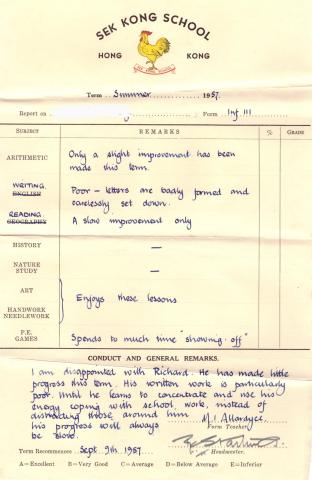 SEK KONG SCHOOL
HONG KONG
Term Summer 1957.
Report on Form Inf III
SUBJECT REMARKS % GRADE
ARITHMETIC Only a slight improvement has been
made this term.
WRITING
ENGLISH Poor - letters are badly formed and
carelessly set down.
READING
GEOGRAPHY A slow improvement only
HISTORY —
NATURE
STUDY —
ART
Enjoys these lessons
HANDWORK
NEEDLEWORK
P.E.
GAMES Spends to much time "showing off"
CONDUCT AND GENERAL REMARKS.
I am disappointed with Richard. He has made little
progress this term. His written work is particularly
poor. Until he learns to concentrate and use his
energy coping with school work, instead of
distracting those around him
his progress will always
be slow.
M. I. Allardyce
Form Teacher
Headmaster.
Term Recommences Sept. 9th. 1957.
A=Excellent B=Very Good C=Average D=Below Average E=Inferior